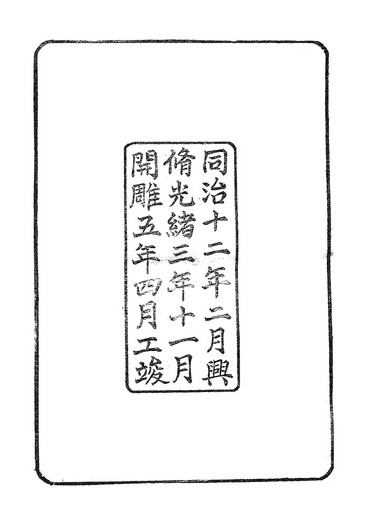 同治十二年二月興
脩光緒三年十一月
開雕五年四月工竣